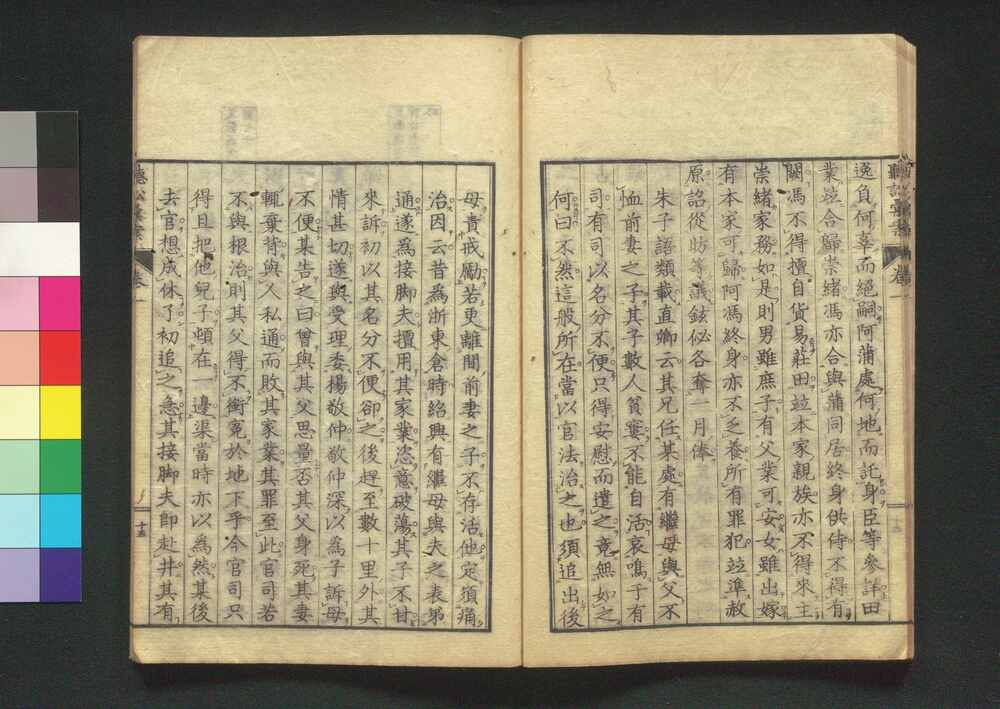 逸負何辜而絕嗣阿蒲處何地而託身臣等參詳田
業竝合歸崇緒馮亦合與蒲同居終身供侍不得有
闕馮不得擅自貨易莊田竝本家親族亦不得來主
崇緒家務如是則男雖庶子有父業可安女雖出嫁
有本家可歸阿馮終身亦不乏養所有罪犯竝準赦
原詔從昉等議鉉佖各奪一月俸
朱子語類載直卿云其兄任某處有繼母與父不
恤前妻之子其子數人貧窶不能自活哀鳴于有
司有司以名分不便只得安慰而遣之竟無如之
何曰不然這般所在當以官法治之也須追出後
母責戒勵若更離間前妻之子不存活他定須痛
治因云昔為浙東倉時紹興有繼母與夫之表弟
通遂為接脚夫擅用其家業恣意破蕩其子不甘
來訴初以其名分不便卻之後趕至數十里外其
情甚切遂與受理委楊敬仲敬仲深以為子訴母
不便某告之曰曾與其父思量否其父身死其妻
輒棄背與人私通而敗其家業其罪至此官司若
不與根治則其父得不銜冤於地下乎今官司只
得且把他兒子頓在一邊渠當時亦以為然某後
去官想成休了初追之急其接脚夫即赴井其有
聽訟彙案
卷一
十五